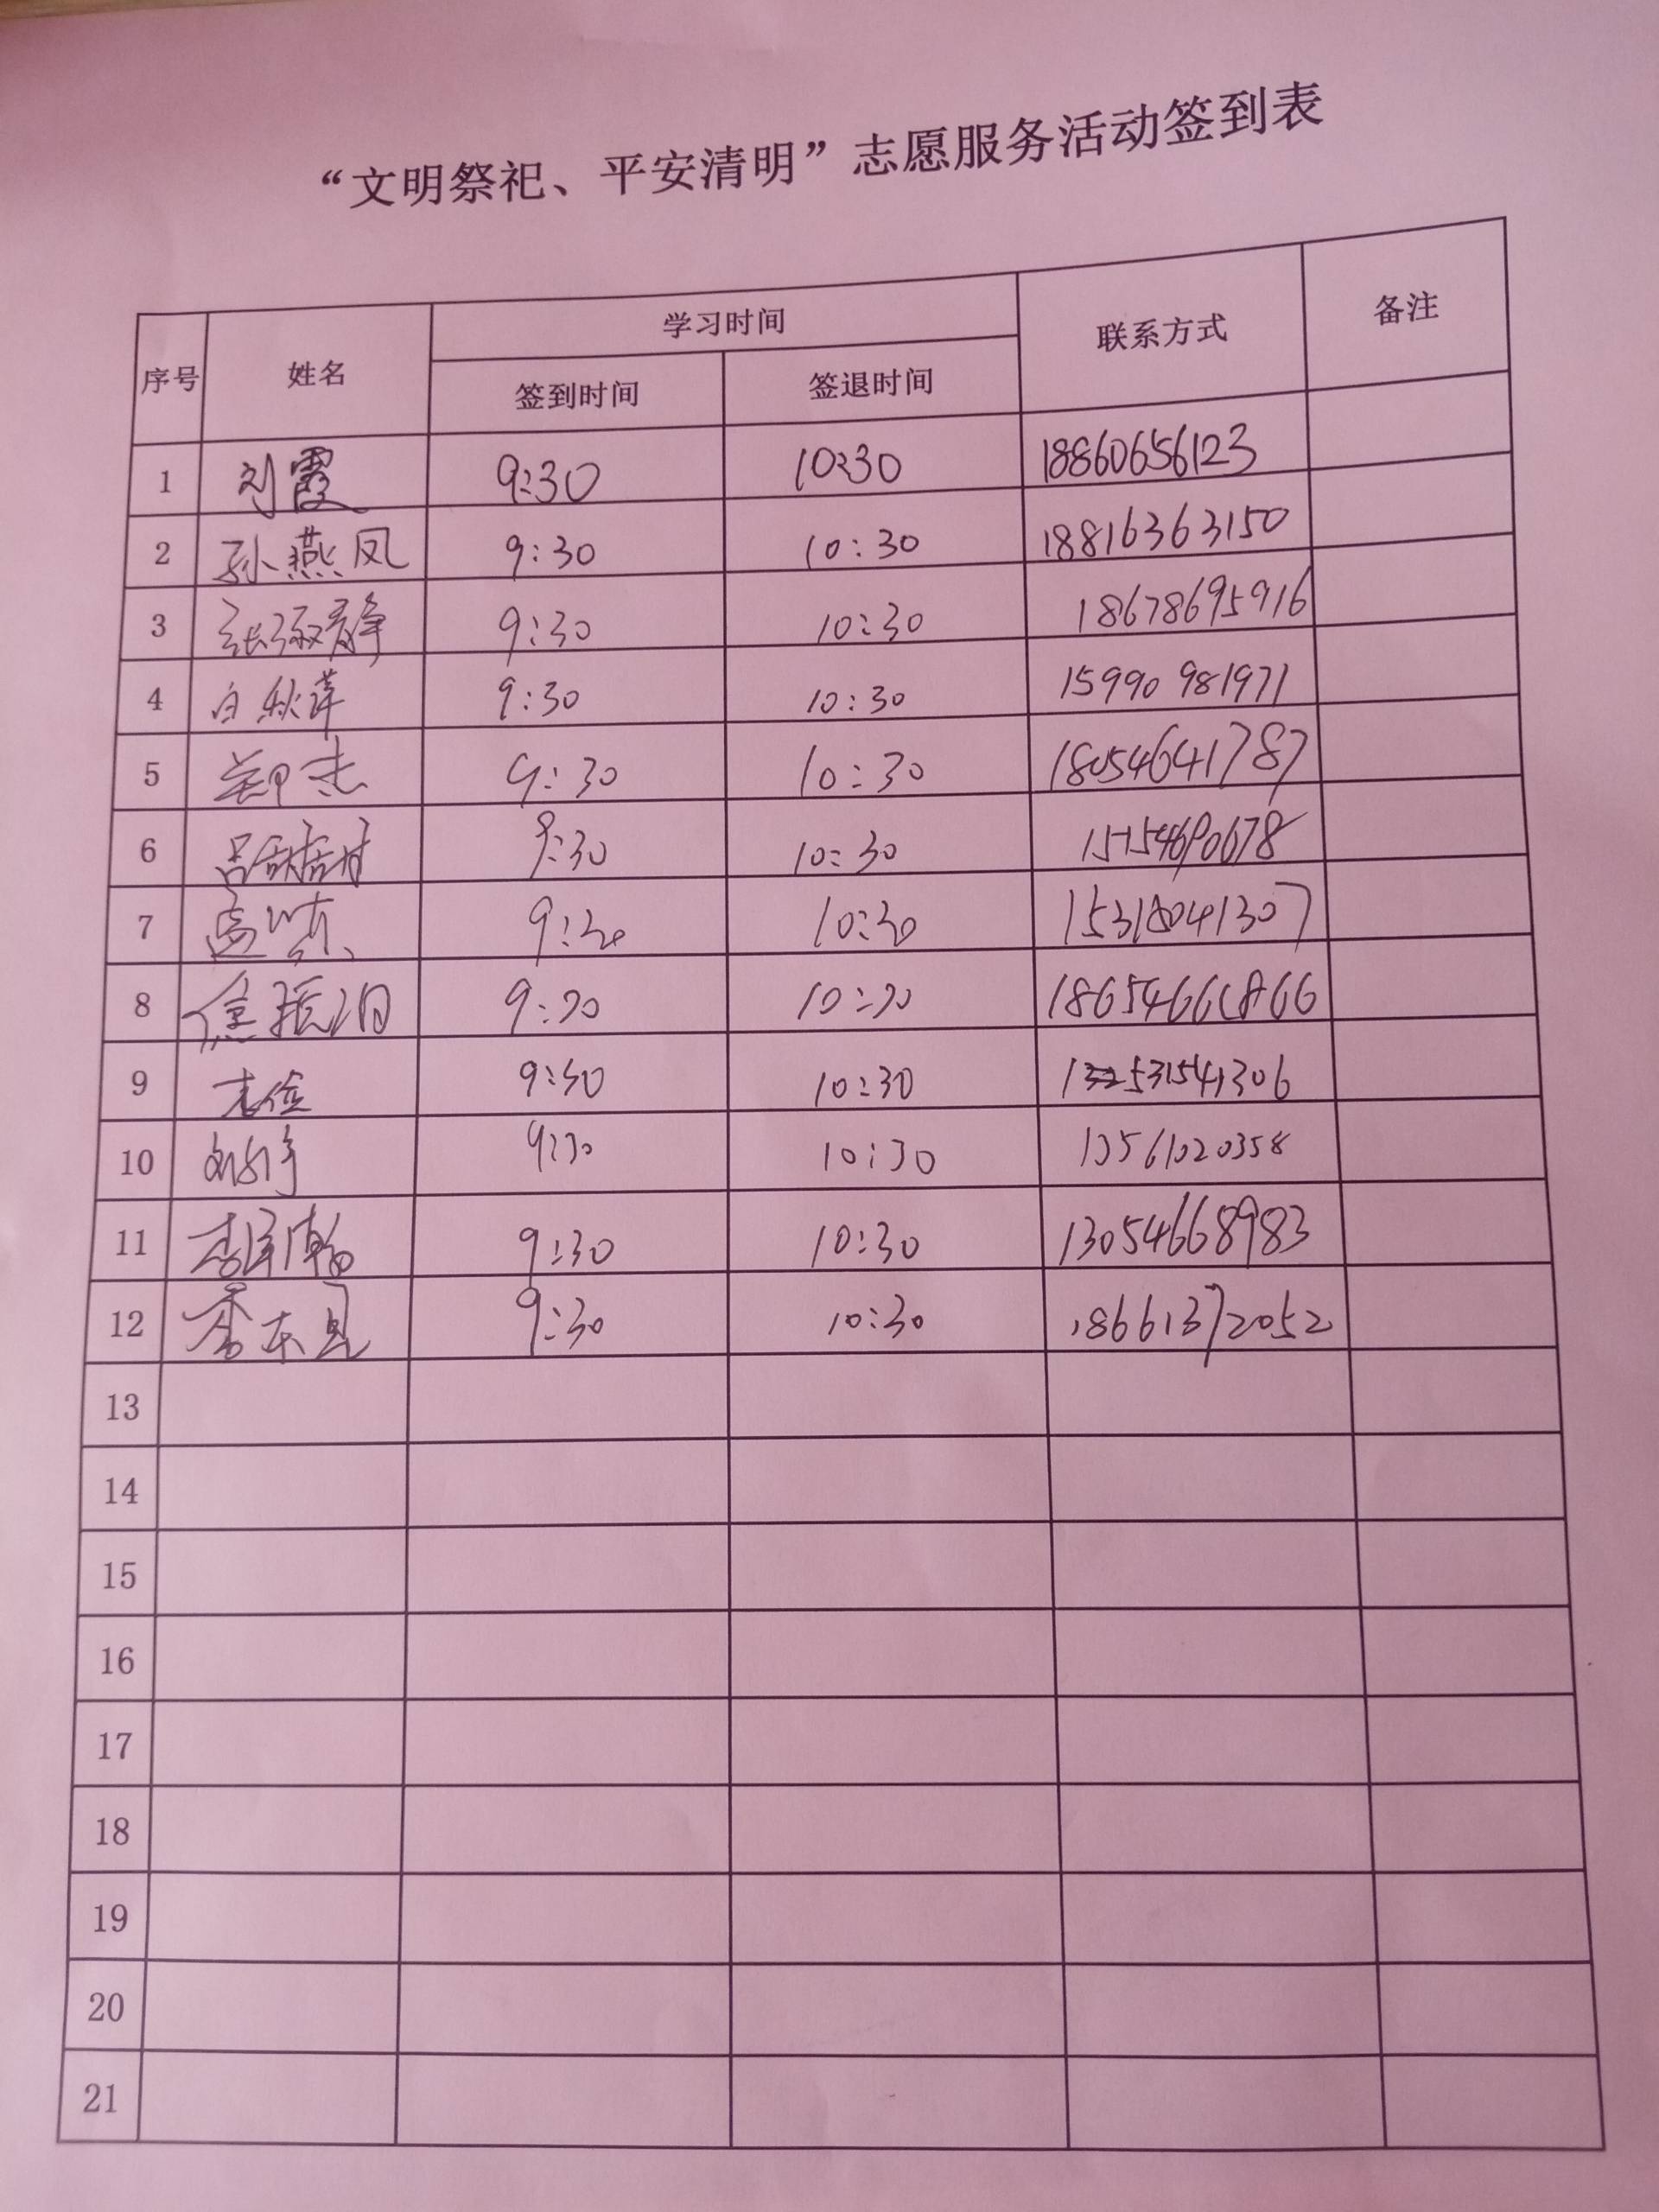 “文明祭祀、平安清明”志愿服务活动签到表
序号 姓名 学习时间 联系方式 备注
签到时间 签退时间
1 刘霞 9:30 10:30 18860656123
2 孙燕凤 9:30 10:30 18816363150
3 张淑静 9:30 10:30 18678695916
4 白秋萍 9:30 10:30 15990981971
5 郑杰 9:30 10:30 18054641787
6 吕甜甜 9:30 10:30 15154690678
7 9:30 10:30 15318041307
8 焦振 9:30 10:30
9 9:30 10:30
10 9:30 10:30 13561020358
11 李泽瀚 9:30 10:30 13054668983
12 9:30 10:30 18661372052
13
14
15
16
17
18
19
20
21